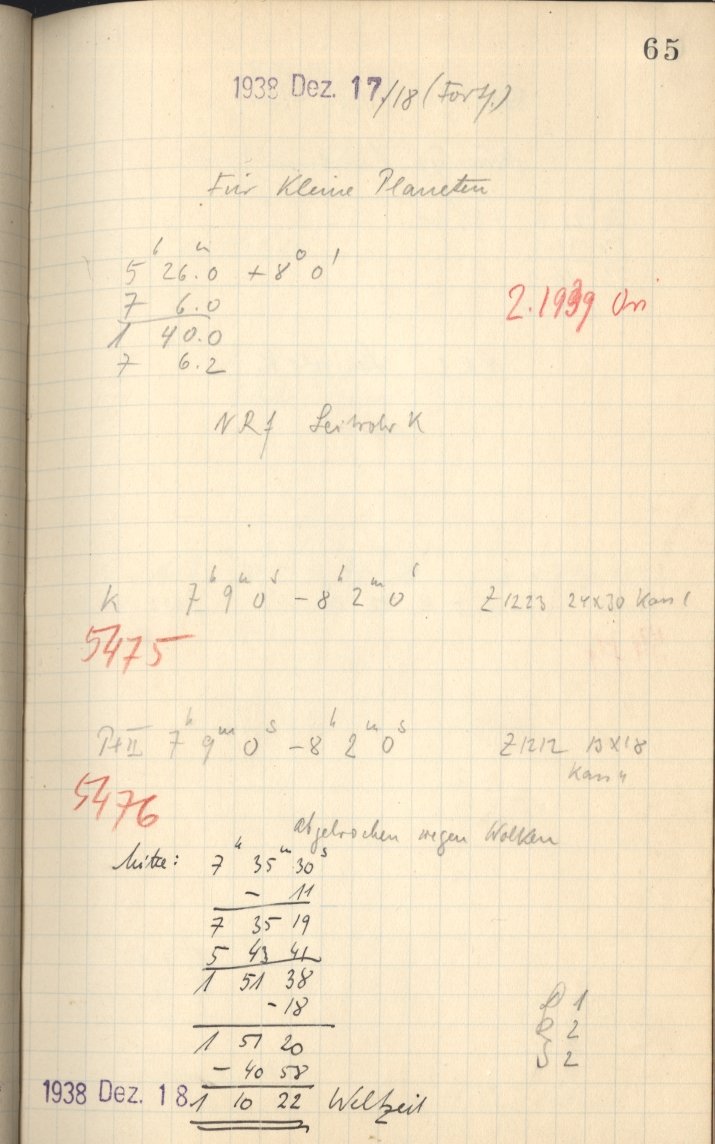 65
1938 Dez. 17/18 (Forts.)
Für Kleine Planeten
5ʰ 26.ᵐ0 + 8° 0'
7 6.0
1 40.0
7 6.2
2.1939 Ori
NRf Leitrohr K
K 7ʰ 9ᵐ 0ˢ – 8ʰ 2ᵐ 0ˢ Z1223 24x30 Kass 1
5475
7ʰ 9ᵐ 0ˢ – 8ʰ 2ᵐ 0ˢ Z1212 13x18
5476 Kass 4
abgebrochen wegen Wolken
Mitte: 7ʰ 35ᵐ 30ˢ
– 11
7 35 19
5 43 41
1 51 38
- 18
1 51 20
– 40 58
1938 Dez. 18 1 10 22 Weltzeit
1
2
2